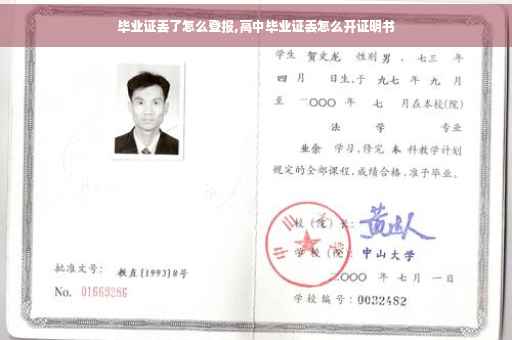 毕业证丢了怎么登报,高中毕业证丢怎么开证明书
学生 贺文龙 性别男 、七三 年
四月 日生,于 九七 年 九 月
至 二〇〇〇 年 七 月在本校(院)
法 学 专业
业余 学习,修完 本 科教学计划
规定的全部课程,成绩合格,准予毕业。
校(院)长:
学校(院): 中山大学
二〇〇〇 年 七月 一日
批准文号: 教直[1993]8号
No. 01663286
学校编号: 0032482